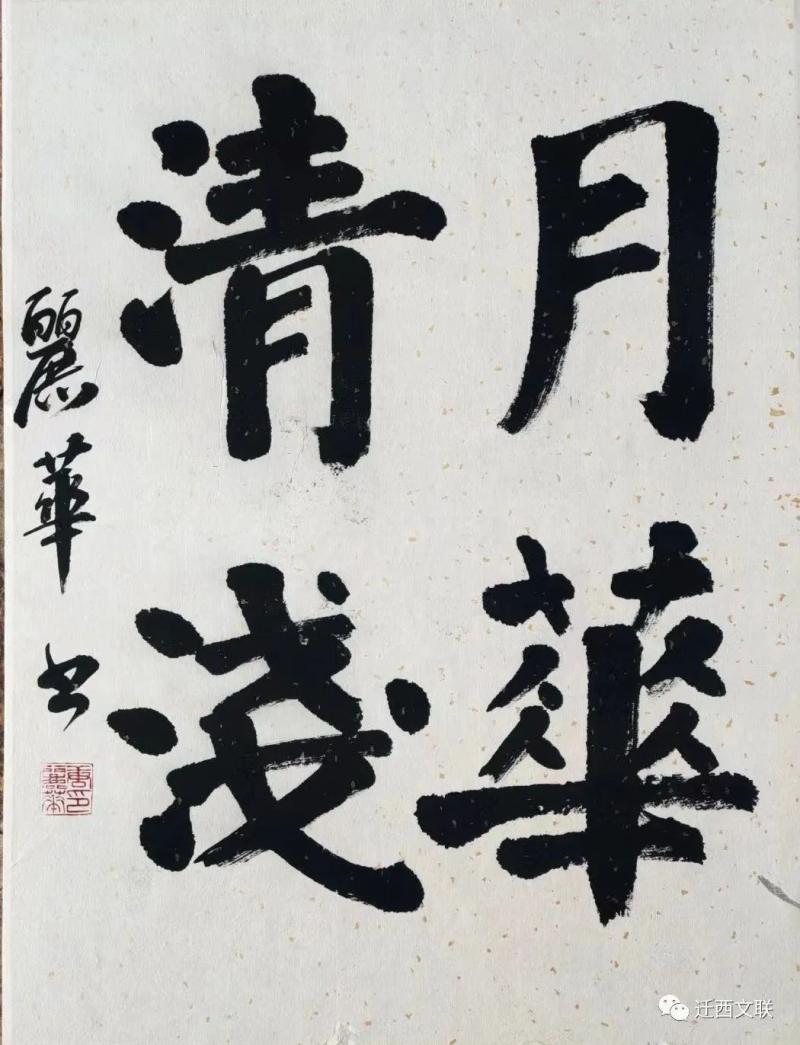 月華
清淺
麗華书
迁西文联